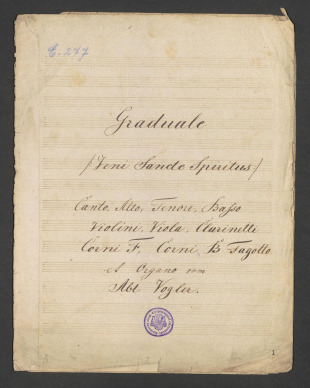 E. 277
Graduale
/Veni Sancte Spiritus/
Canto, Alto, Tenore, Basso
Violini, Viola, Clarinetti
Corni F, Corni B Fagotto
et Organo von
Abt Vogler.
1